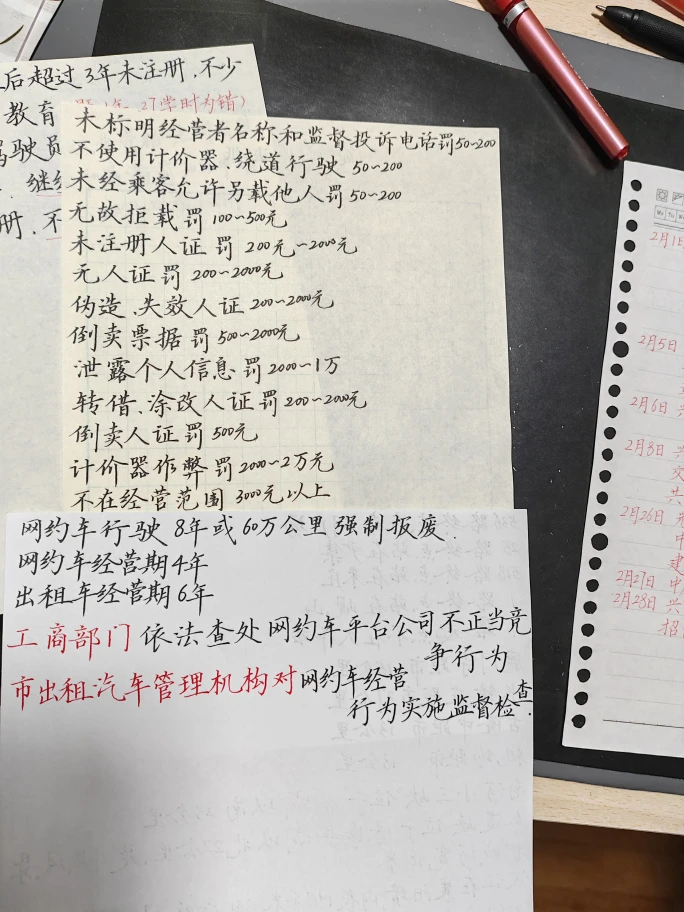 后超过3年未注册,不少
教育
27学时为错)
驾驶员
继续
册,不
未标明经营者名称和监督投诉电话罚50~200
不使用计价器、绕道行驶 50~200
未经乘客允许另载他人罚 50~200
无故拒载罚 100~500元
未注册人证罚 200元~2000元
无人证罚 200~2000元
伪造、失效人证 200~2000元
倒卖票据罚 500~2000元
泄露个人信息罚 2000~1万
转借、涂改人证罚 200~2000元
倒卖人证罚 500元
计价器作弊罚 2000~2万元
不在经营范围 3000元以上
网约车行驶 8年或 60万公里 强制报废.
网约车经营期4年
出租车经营期6年
工商部门依法查处网约车平台公司不正当竞
争行为
市出租汽车管理机构对网约车经营
行为实施监督检查.
2月1日
2月5日
2月6日 兴
2月8日 兴
交
共
2月26日 元
中
建
2月27日 中
2月28日 兴
招